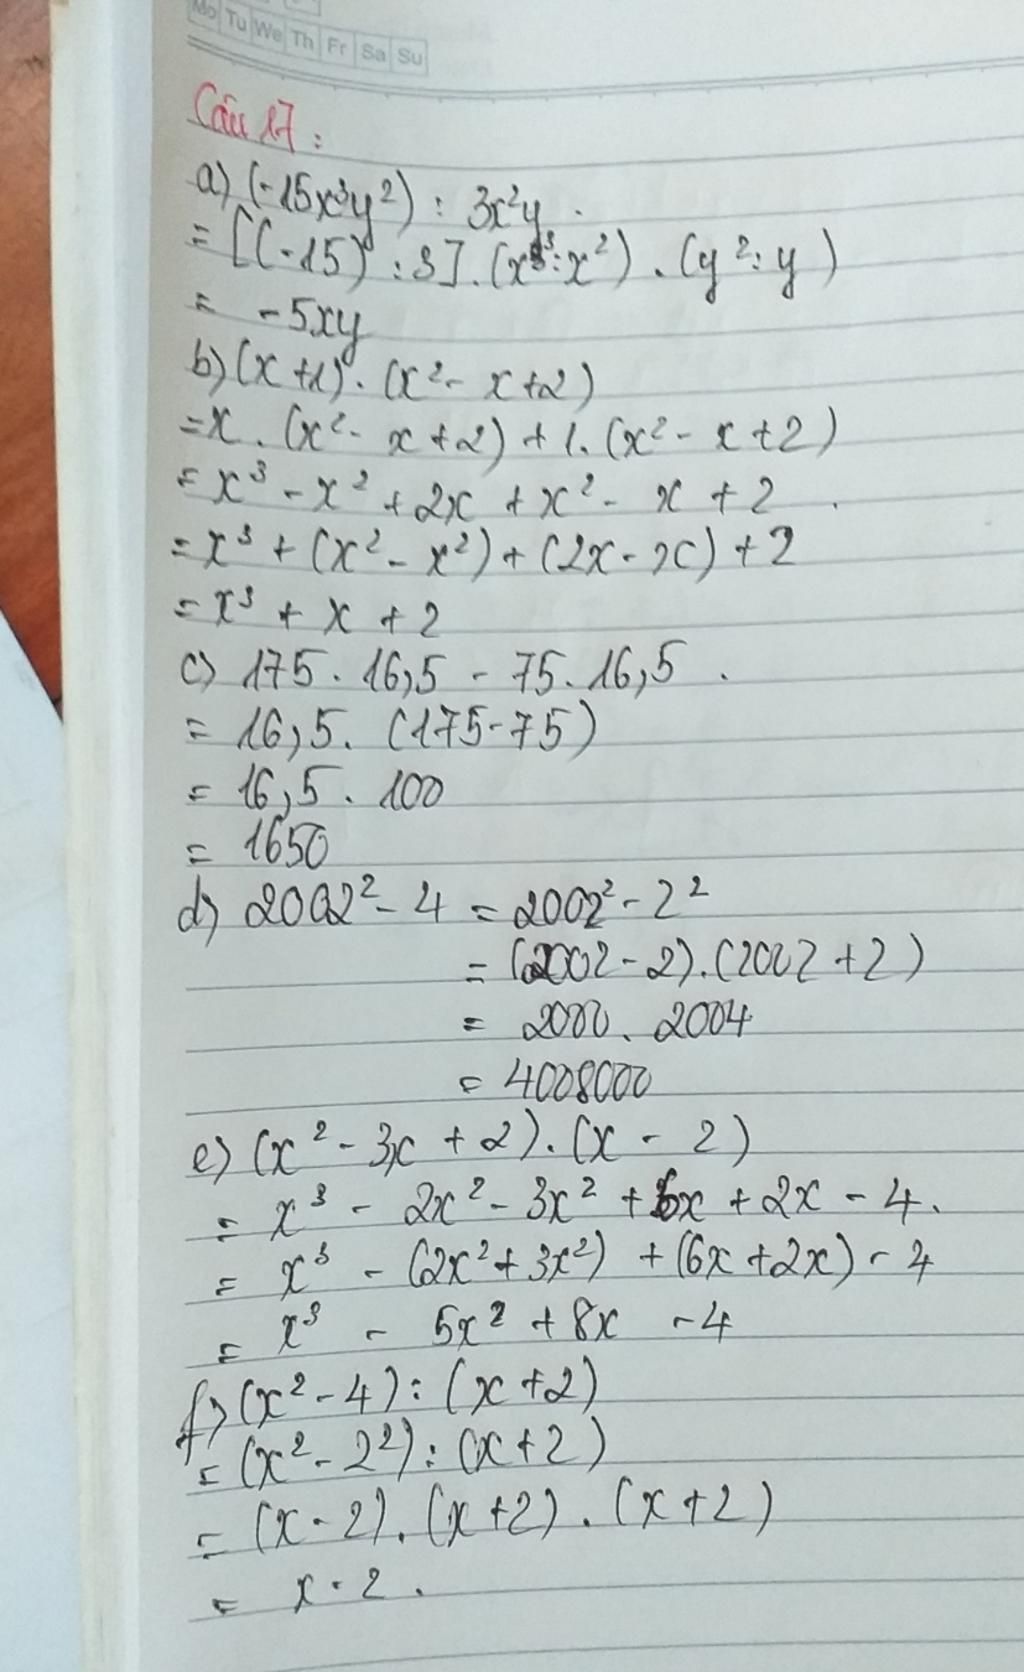 Mo Tu We Th Fr Sa Su
Câu 17:
a) (-15x³y²) : 3x²y.
= [(-15) : 3] . (x³ : x²) . (y² : y)
= -5xy
b) (x+1) . (x² - x+2)
= x . (x² - x+2) + 1. (x² - x+2)
= x³ - x² + 2x + x² - x + 2 .
= x³ + (x² - x²) + (2x - x) + 2
= x³ + x + 2
c) 175 . 16,5 - 75 . 16,5 .
= 16,5. (175-75)
= 16,5 . 100
= 1650
d) 2002² - 4 = 2002² - 2²
= (2002 - 2).(2002 + 2)
= 2000. 2004
= 4008000
e) (x² - 3x + 2).(x - 2)
= x³ - 2x² - 3x² + 6x + 2x - 4.
= x³ - (2x² + 3x²) + (6x + 2x) - 4
= x³ - 5x² + 8x - 4
f) (x² - 4) : (x+2)
= (x² - 2²) : (x+2)
= (x - 2). (x+2) . (x+2)
= x - 2 .